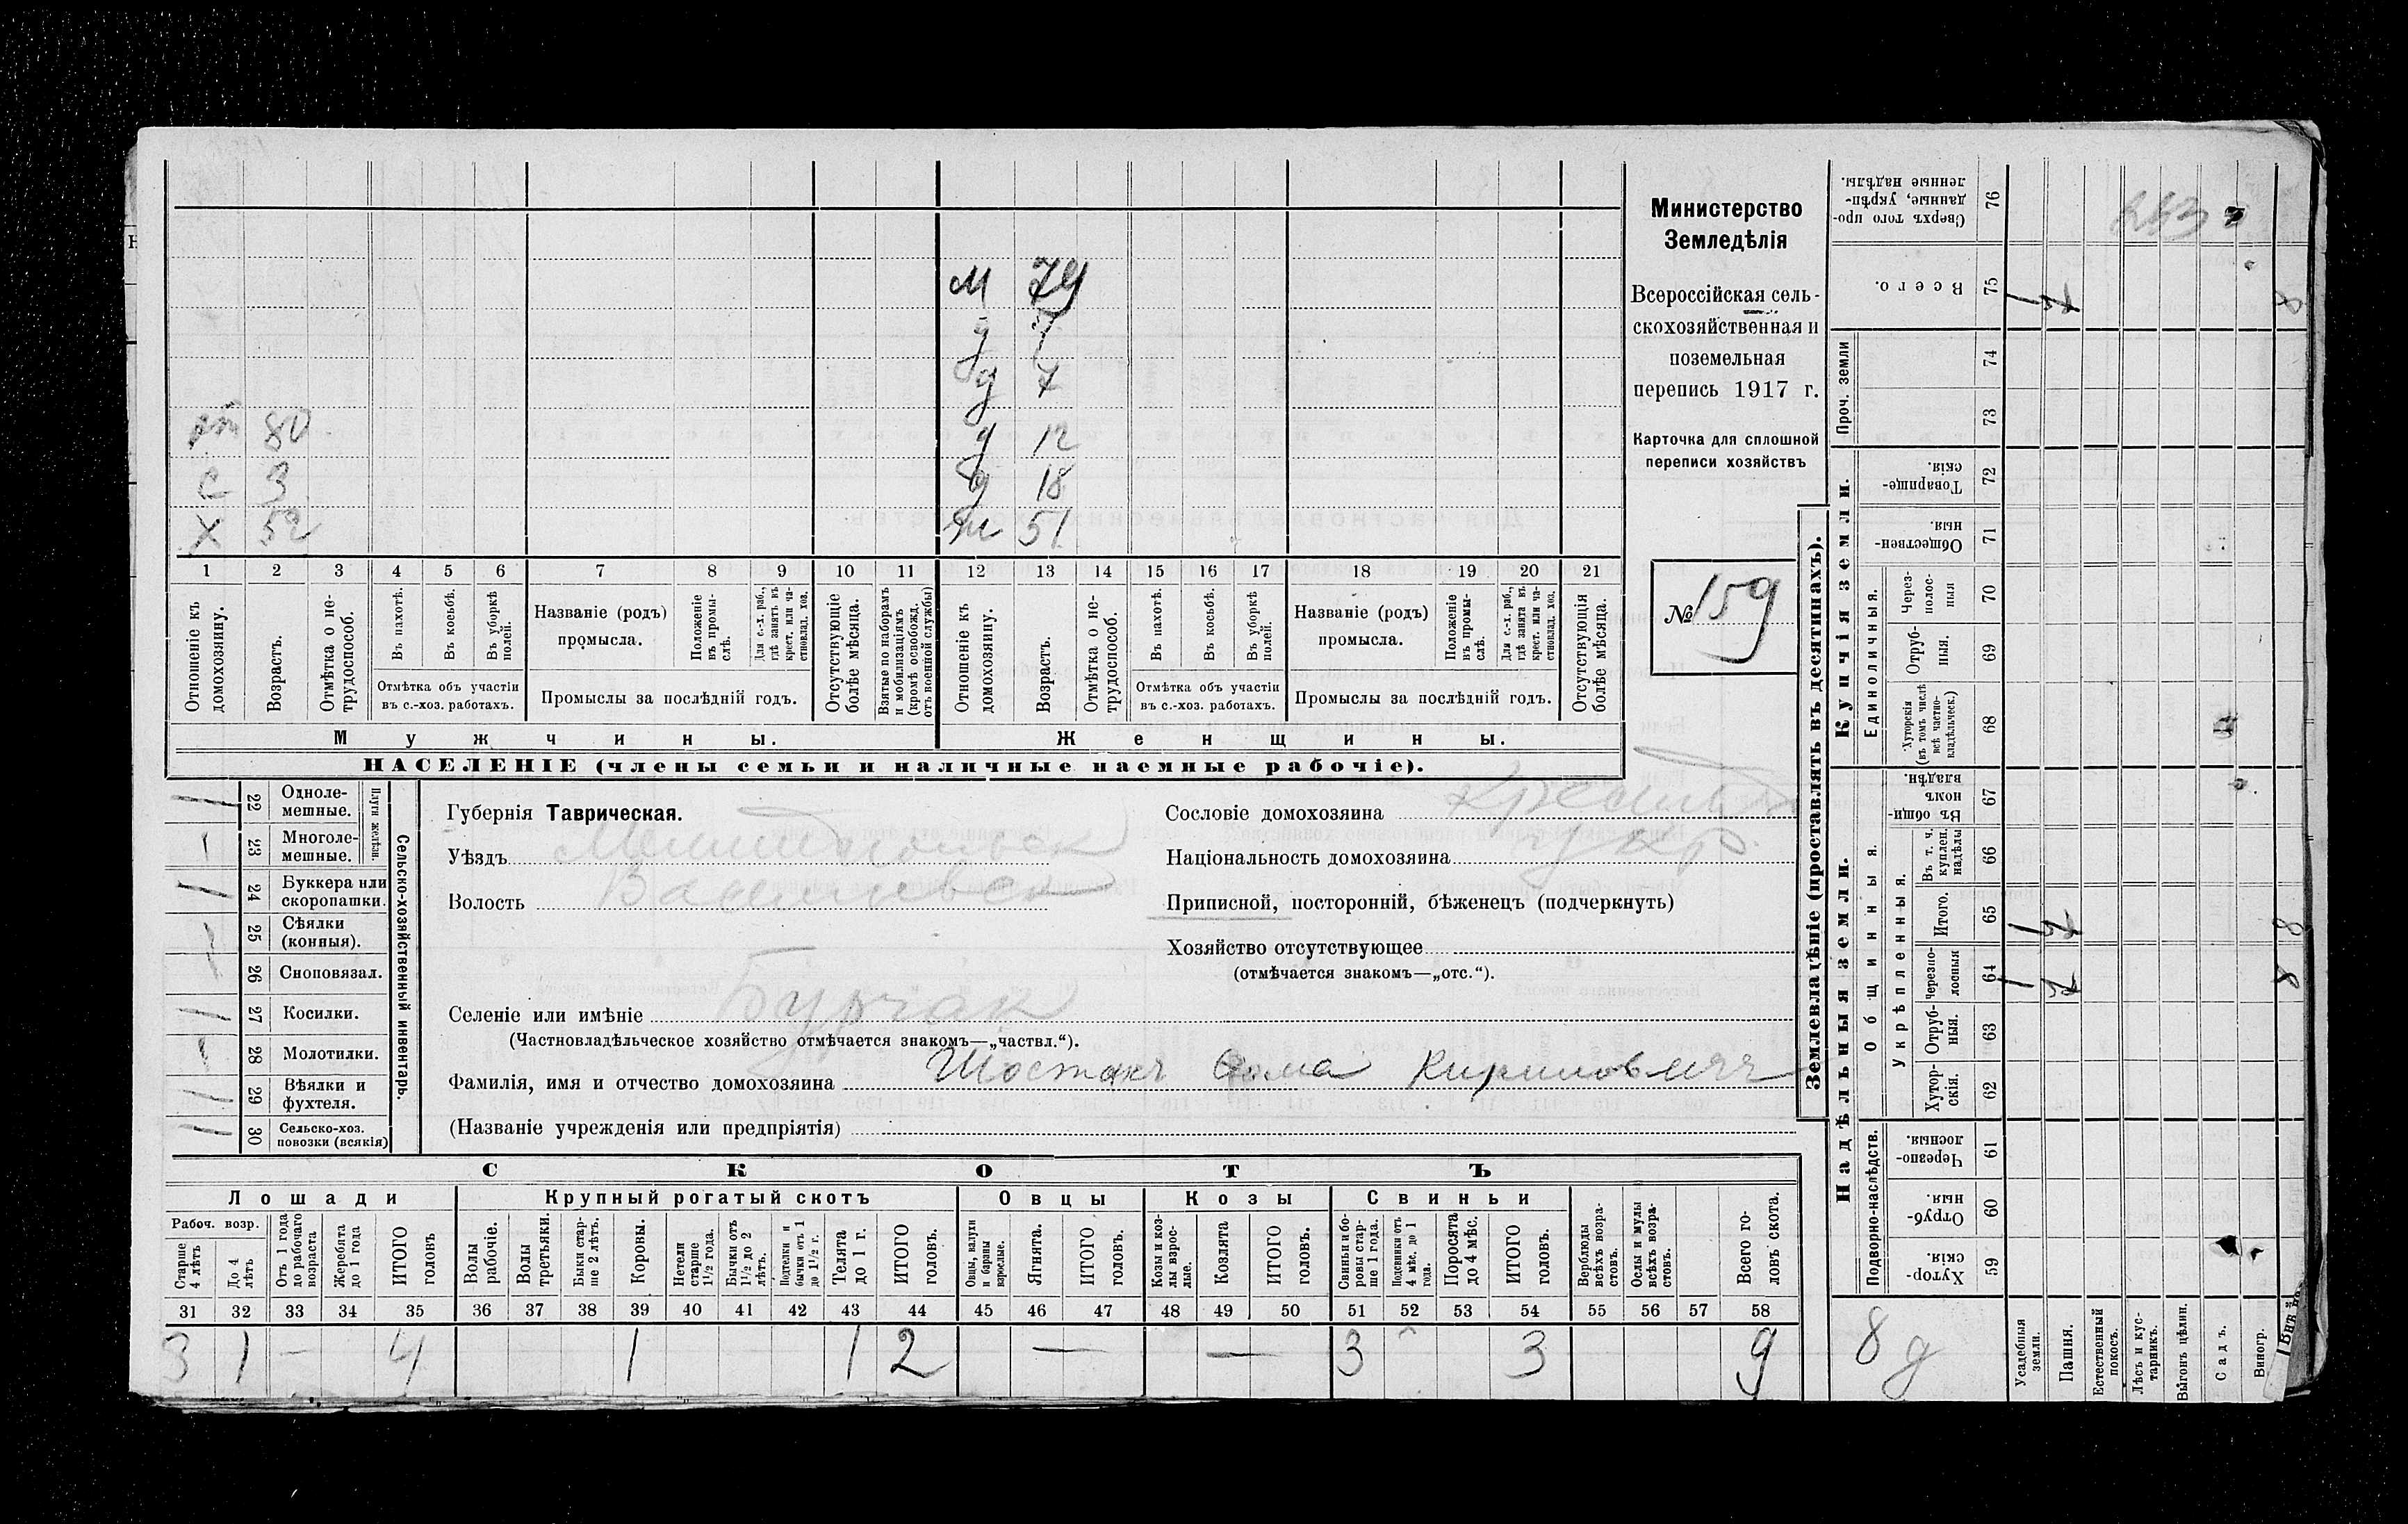 М 79
д 7
д 7
от 80 д 12
с 3 д 18
Х 52 ж 51
1 2 3 4 5 6 7 8 9 10 11 12 13 14 15 16 17 18 19 20 21
Отношеніе къ домохозяину.
Возрастъ.
Отмѣтка о не-трудоспособ.
Въ пахотѣ.
Въ косьбѣ.
Въ уборкѣ полей.
Отмѣтка объ участіи въ с.-хоз. работахъ.
Названіе (родъ) промысла.
Положеніе въ промы-слѣ.
Для с.-х. раб., гдѣ занятъ въ крест. или ча-стновлад. хоз.
Промыслы за послѣдній годъ.
Отсутствующіе болѣе мѣсяца.
Взятые по наборамъ и мобилизаціямъ (кромѣ освобожд. отъ военной службы)
Отношеніе къ домохозяину.
Возрастъ.
Отмѣтка о не-трудоспособ.
Въ пахотѣ.
Въ косьбѣ.
Въ уборкѣ полей.
Отмѣтка объ участіи въ с.-хоз. работахъ.
Названіе (родъ) промысла.
Положеніе въ промы-слѣ.
Для с.-х. раб., гдѣ занята въ крест. или ча-стновлад. хоз.
Промыслы за послѣдній годъ.
Отсутствующія болѣе мѣсяца.
Мужчины.
Женщины.
НАСЕЛЕНІЕ (члены семьи и наличные наемные рабочіе).
Министерство
Земледѣлія
Всероссійская сель-
скохозяйственная и
поземельная
перепись 1917 г.
Карточка для сплошной
переписи хозяйствъ
№ 159
22 Одноле-мешные.
23 Многоле-мешные.
Плуги желѣзн.
24 Буккера или скоропашки.
25 Сѣялки (конныя).
26 Сноповязал.
27 Косилки.
28 Молотилки.
29 Вѣялки и фухтеля.
30 Сельско-хоз. повозки (всякія)
Сельско-хозяйственный инвентарь.
Губернія Таврическая.
Уѣздъ Мелитопольск
Волость Васильевск
Селеніе или имѣніе Бурчак
(Частновладѣльческое хозяйство отмѣчается знакомъ—„частвл.“).
Фамилія, имя и отчество домохозяина Шостакъ Фома Кириловичъ
(Названіе учрежденія или предпріятія)
Сословіе домохозяина Крестьян
Національность домохозяина укр.
Приписной, посторонній, бѣженецъ (подчеркнуть)
Хозяйство отсутствующее
(отмѣчается знакомъ—„отс.“).
СКОТЪ
Лошади
Крупный рогатый скотъ
Овцы
Козы
Свиньи
Рабоч. возр.
Старше 4 лѣтъ
До 4 лѣтъ
Отъ 1 года до рабочаго возраста
Жеребята до 1 года
ИТОГО головъ
Волы рабочіе.
Волы третьяки.
Быки стар-ше 2 лѣтъ.
Коровы.
Нетели старше 1½ года.
Бычки отъ 1½ до 2 лѣтъ.
Подтелки и бычки отъ 1 до 1½ г.
Телята до 1 г.
ИТОГО головъ.
Овцы, валухи и бараны взрослые.
Ягнята.
ИТОГО головъ.
Козы и коз-лы взрос-лые.
Козлята
ИТОГО головъ.
Свиньи и бо-ровы стар-ше 1 года.
Подсвинки отъ 4 мѣс. до 1 года.
Поросята до 4 мѣс.
ИТОГО головъ.
Верблюды всѣхъ возра-стовъ.
Ослы и мулы всѣхъ возра-стовъ.
Всего го-ловъ скота.
31 32 33 34 35 36 37 38 39 40 41 42 43 44 45 46 47 48 49 50 51 52 53 54 55 56 57 58
3 1 — 4 1 1 2 — — 3 3 9
Землевладѣніе (проставлять въ десятинахъ).
Надѣльныя земли.
Купчія земли.
Проч. земли
Подворно-наслѣдств.
Общинныя.
Укрѣпленныя.
Единоличныя.
Сверхъ того про-данные, укрѣп-ленные надѣлы. 76
Всего. 75
74
73
Товарище-скія. 72
Обществен-ныя. 71
Через-полос-ныя 70
Отруб-ныя. 69
Хуторскія (въ томъ числѣ всѣ частно-владѣльческ.) 68
Въ общи-номъ владѣн. 67
Въ т. ч. куплен. надѣлы 66
Итого. 65
Черезпо-лосныя 64
Отруб-ныя. 63
Хутор-скія. 62
Черезпо-лосныя. 61
Отруб-ныя. 60
Хутор-скія 59
8 д
Усадебныя земли.
Пашня.
Естественный покосъ.
Лѣсъ и кус-тарникъ.
Выгонъ цѣлин.
Садъ.
Виногр.
8
8
8